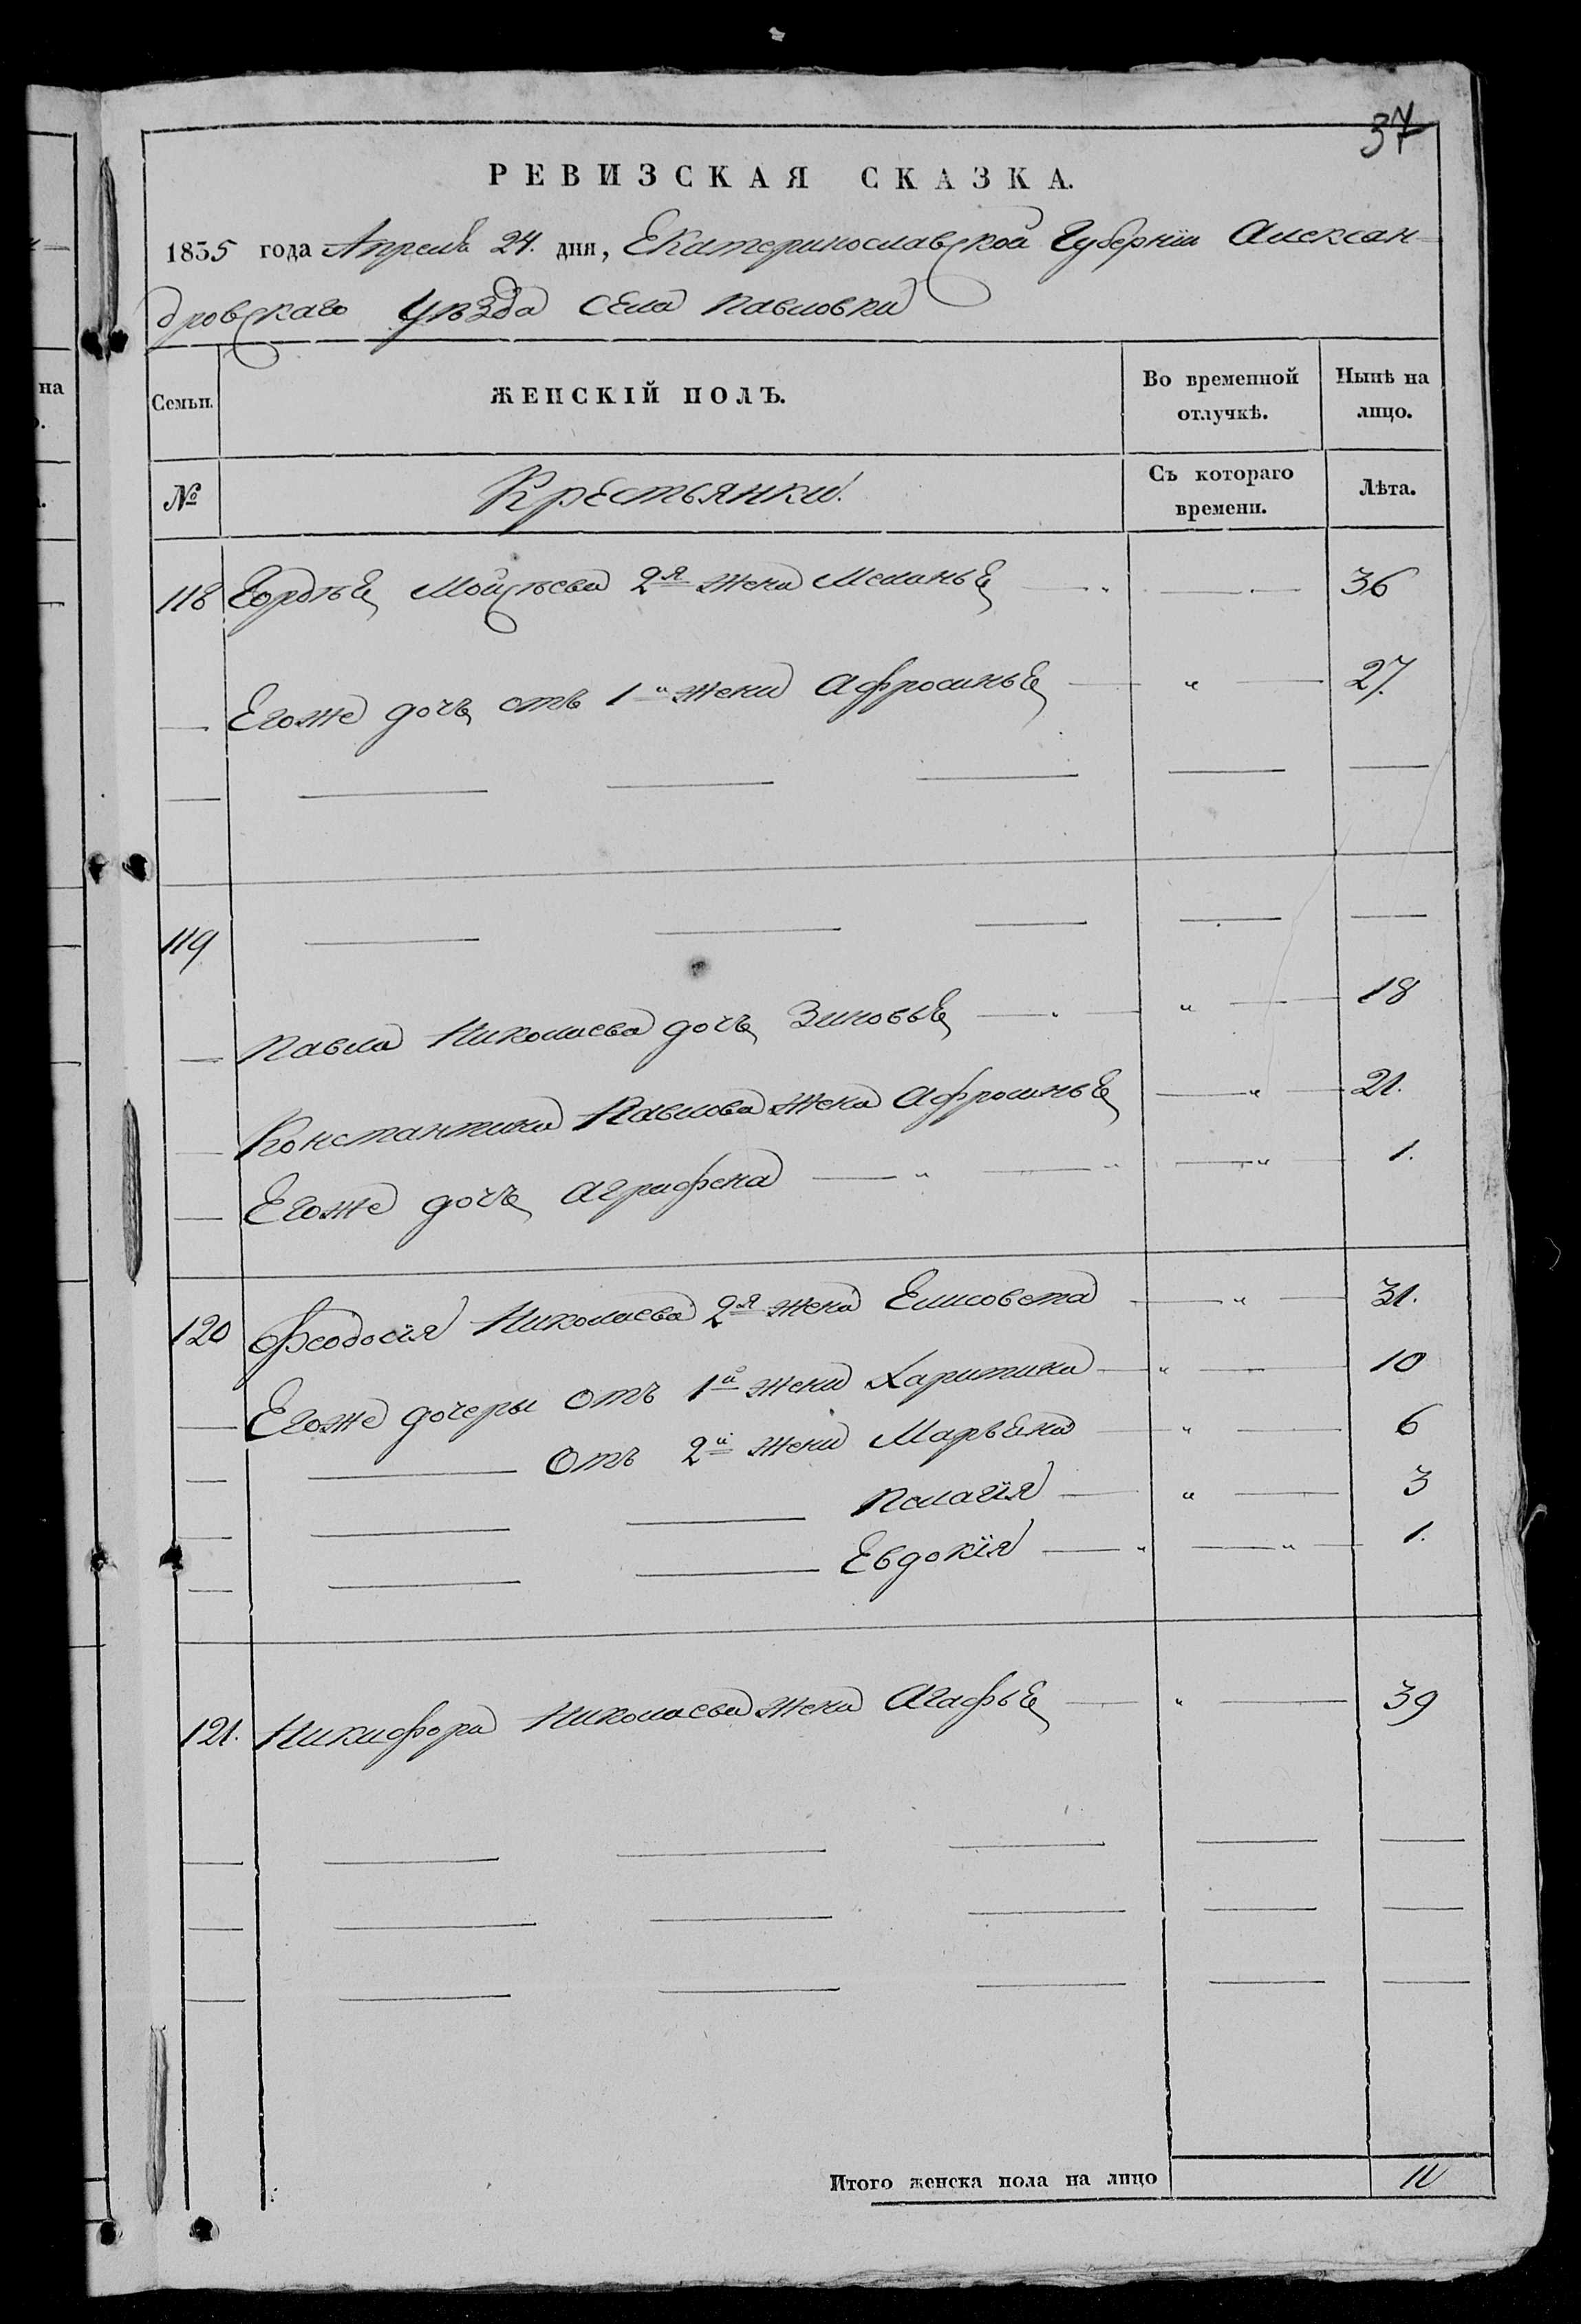 37
РЕВИЗСКАЯ СКАЗКА.
1835 года Апреля 24. дня, Екатеринославской Губернїи Алексан-
дровскаго Уѣзда села Павловки
Семьи. ЖЕНСКІЙ ПОЛЪ. Во временной отлучкѣ. Нынѣ на лицо.
№ Крестьянки. Съ котораго времени. Лѣта.
118 Гордѣя Мойсѣева 2я жена Меланья 36
Егоже дочь отъ 1й жены Афросинья 27.
119
Павла Николаева дочь Зиновья 18
Константина Павлова жена Афросинья 21.
Егоже дочь Аграфена 1.
120 Феодосія Николаева 2я жена Елисовета 31.
Егоже дочеры отъ 1й жены Харитина 10
Отъ 2й жены Марьяна 6
Пелагія 3
Евдокїя 1.
121. Никифора Николаева жена Агафья 39
Итого женска пола на лицо 11
на